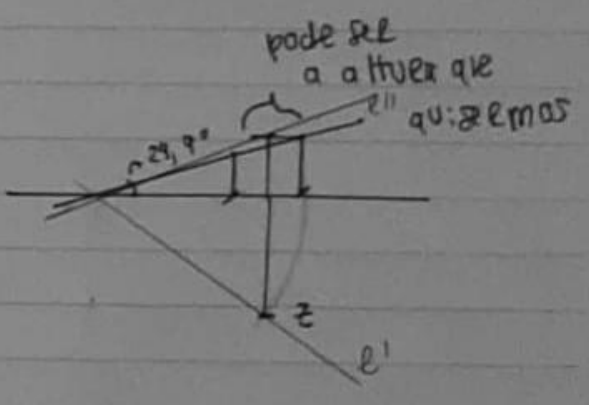 pode ser
a altura que
quizermos
l''
24,9°
z
l'